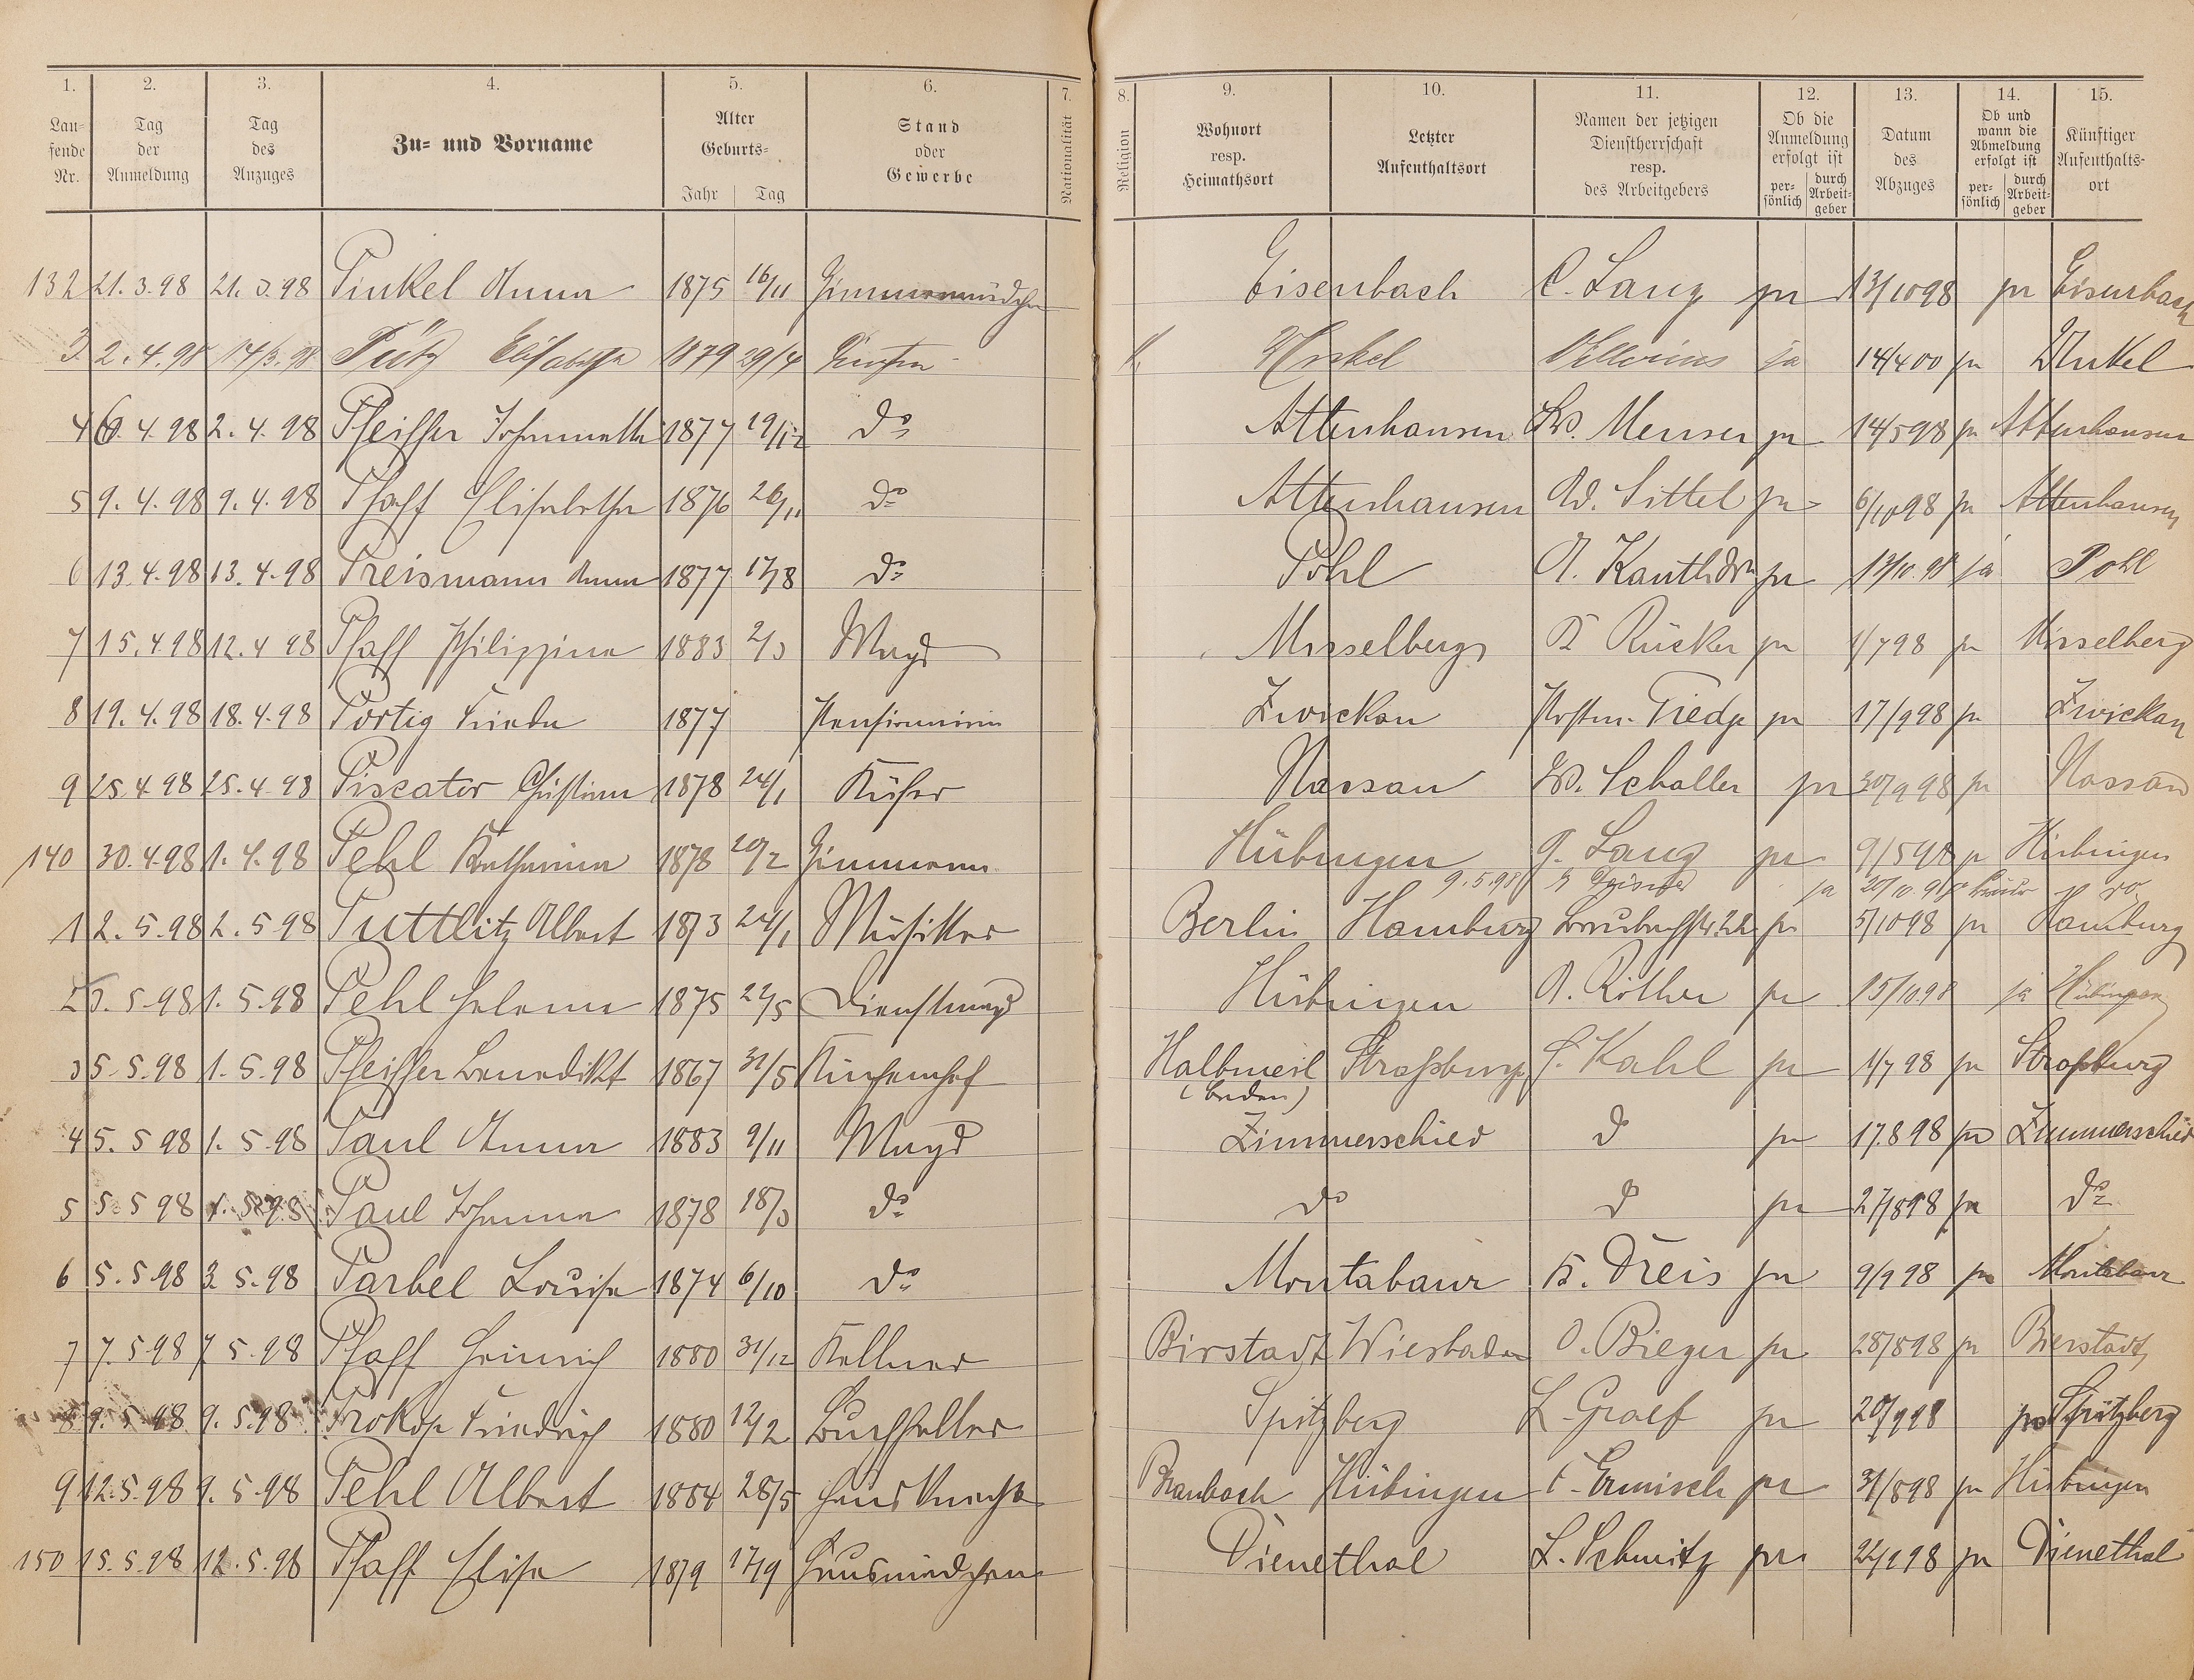 1. 2. 3. 4. 5. 6. 7. 8. 9. 10. 11. 12. 13. 14. 15.
Lau-
fende
Nr.
Tag
der
Anmeldung
Tag
des
Anzuges
Zu- und Vorname
Alter
Geburts-
Jahr Tag
Stand
oder
Gewerbe
Nationalität
Religion
Wohnort
resp.
Heimathsort
Letzter
Aufenthaltsort
Namen der jetzigen
Dienstherrschaft
resp.
des Arbeitgebers
Ob die
Anmeldung
erfolgt ist
per-
sönlich
durch
Arbeit-
geber
Datum
des
Abzuges
Ob und
wann die
Abmeldung
erfolgt ist
per-
sönlich
durch
Arbeit-
geber
Künftiger
Aufenthalts-
ort
132 21.3.98 21.3.98 Pinkel Anna 1875 16/11 Zimmermädchen Eisenbach C. Lang ja 13/10 98 ja Eisenbach
3 2.4.98 14/3.98 Pütz Elisabetha 1879 29/4 ja 14/4 00 ja
4 6.4.98 2.4.98 Pfeiffer Johannette 1877 19/12 do Attenhausen W. Menser ja 14/5 98 ja Attenhausen
5 9.4.98 9.4.98 Pfaff Elisabetha 1876 26/11 do Attenhausen W. Sittel ja 6/10 98 ja Attenhausen
6 13.4.98 13.4.98 Preismann Anna 1877 17/8 do Pohl A. ja 13/10.98 ja Pohl
7 15.4.98 12.4.98 Pfaff Philippina 1883 2/3 Magd Misselberg Rücker ja 1/7 98 ja Misselberg
8 19.4.98 18.4.98 Portig Frieda 1877 Pensionärin Zwickau ja 17/9 98 ja Zwickau
9 25.4.98 25.4.98 Piscator Christian 1878 24/1 Küfer Nassau W. Schaller ja 30/9 98 ja Nassau
140 30.4.98 1.4.98 Pehl Katharina 1878 20/2 Zimmerm. Hübingen G. Lang ja 9/5 98 ja Hübingen
9.5.98 ja 20/10.98
1 2.5.98 2.5.98 Puttlitz Albert 1873 24/1 Musiker Berlin Hamburg ja 5/10 98 ja Hamburg
2 3.5.98 1.5.98 Pehl Helena 1875 22/5 Dienstmagd Hübingen A. Röther ja 15/10.98 ja Hübingen
3 5.5.98 1.5.98 Pfeiffer Benedikt 1867 31/5 Küchenchef Halbmeil Straßburg F. Kahl ja 1/7 98 ja Straßburg
(Baden)
4 5.5.98 1.5.98 Paul Anna 1883 9/11 Magd Zimmerschied do ja 17.8 98 ja Zimmerschied
5 5.5.98 1.5.98 Paul Johanna 1878 18/3 do do do ja 27/8 98 ja do
6 5.5.98 3.5.98 Parbel Louise 1874 6/10 do Montabaur K. Dreis ja 9/9 98 ja Montabaur
7 7.5.98 7.5.98 Pfaff Heinrich 1880 31/12 Kellner Birstadt Wiesbaden O. Bieger ja 28/8 98 ja Bierstadt
8 9.5.98 9.5.98 Prokop Friedrich 1880 12/2 Buchhalter Spitzberg L. Graef ja 20/9 98 ja Spitzberg
9 12.5.98 9.5.98 Pehl Albert 1884 28/5 Hausknecht Braubach Hübingen Ermisch ja 31/8 98 ja Hübingen
150 15.5.98 12.5.98 Pfaff Elise 1879 17/9 Hausmädchen Dienethal L. Schmitz ja ja Dienethal